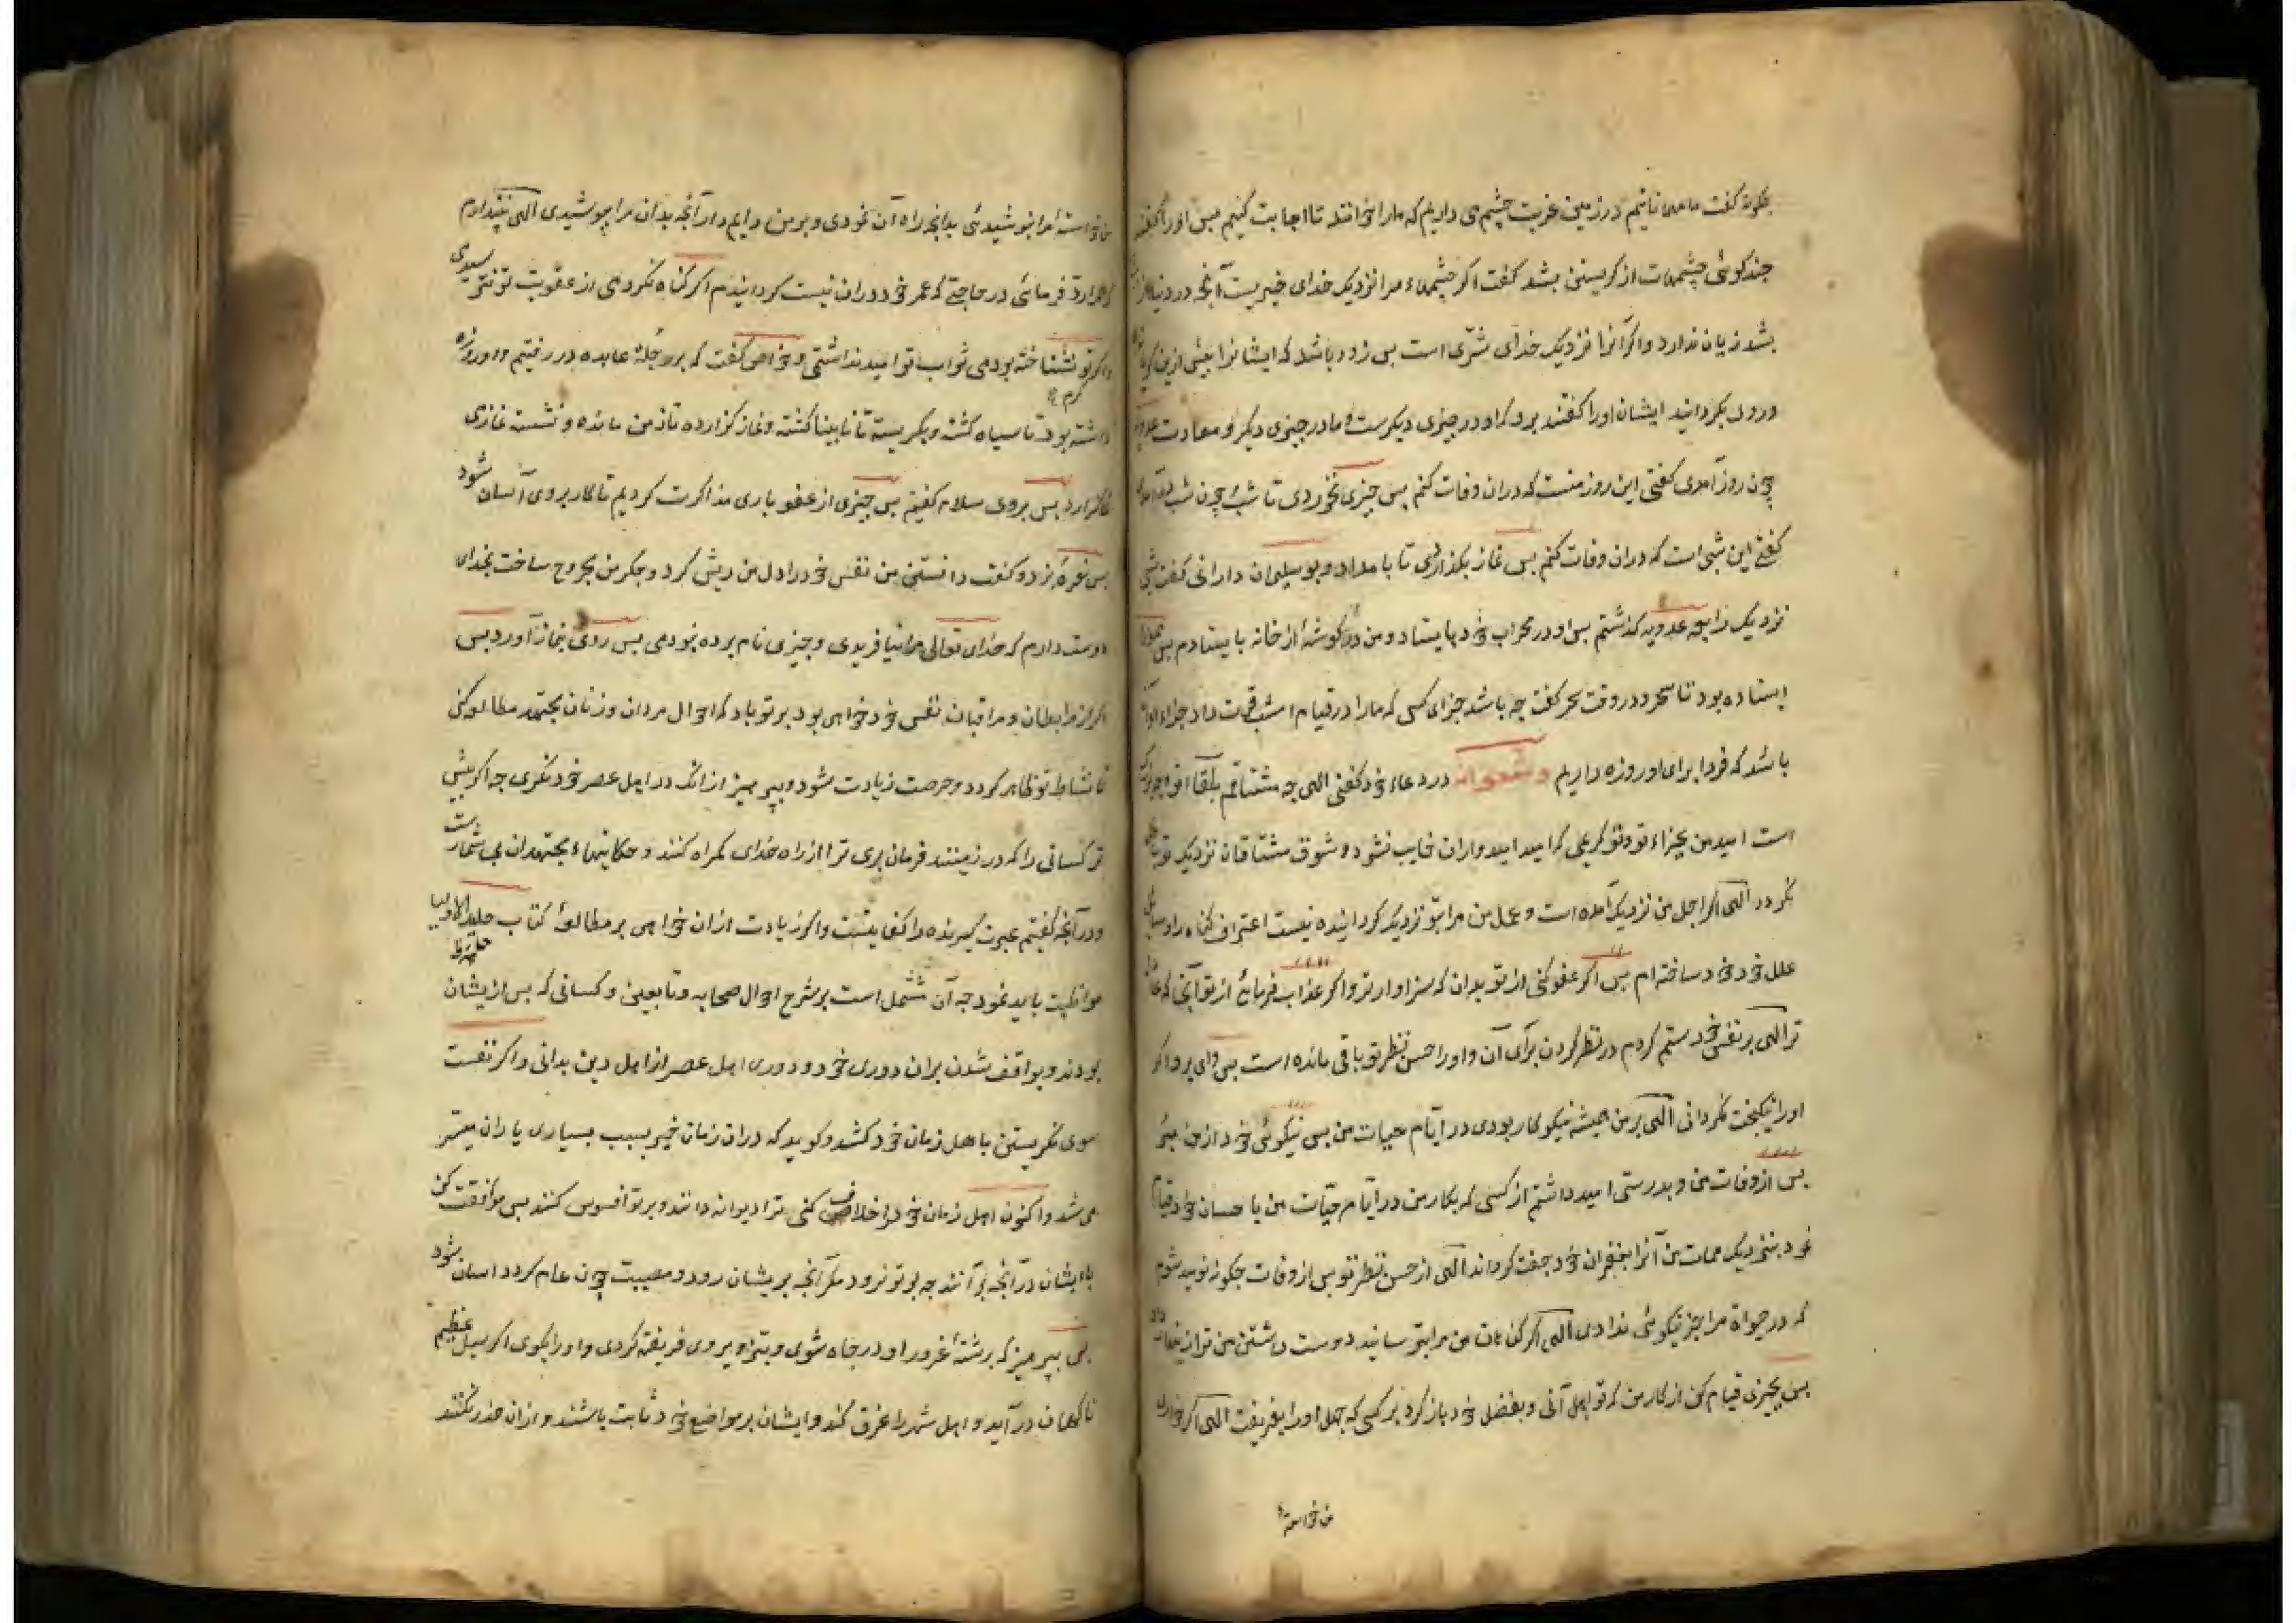 چگونه گفت ما مهمانانیم در زمین غربت چشم می داریم که ما را خوانند تا اجابت کنیم پس او را گفتند
چند گوئی چشمهات از گریستن بشد گفت اگر چشمهاء مرا نزدیک خدای خیریست آنچه در دنیا از
بشد زیان ندارد و اگر آنرا نزدیک خدای شرّی است پس زود باشد که ایشانرا بیش ازین گریه
و روی بگردانید ایشان او را گفتند برو که او در چیزی دیگرست و ما در چیزی دیگر و معادت عدویه
چون روز آمدی گفتی این روز منست که دران وفات کنم پس چیزی نخوردی تا شب و چون شب
گفتی این شبی است که دران وفات کنم پس نماز بگذاردی تا بامداد و بوسلیمان دارانی گفت شبی
نزدیک رابعه عدویه گذشتم پس او در محراب خود بایستاد و من در گوشۀ از خانه بایستادم پس
ایستاده بود تا سحر و در وقت سحر گفت چه باشد جزای کسی که ما را در قیام امشب قوت داد جزاء او آن
باشد که فردا برای او روزه داریم و شعوانه در دعاء خود گفتی الهی چه مشتاقم بلقاء تو و چه بزرگ
است امید من بجزاء تو و تو کریمی که امید امیدواران خایب نشود و شوق مشتاقان نزدیک تو باطل
نگردد الهی اگر اجل من نزدیک آمده است و عمل من مرا بتو نزدیک گرداننده نیست اعتراف گناه را وسایل
علل خود خود ساخته ام پس اگر عفو کنی از تو بدان که سزاوارتر و اگر عذاب فرمائی از تو آنجا که
تر الهی بر نفس خود ستم کردم در نظر کردن برای آن و او را حسن نظر تو باقی مانده است پس وای برو اگر
او را نیکبخت نگردانی الهی بر من همیشه نیکوکار بودی در ایّام حیات من پس نیکوئی خود از من مبر
پس از وفات من و بدرستی امید داشتم از کسی که بکار من در ایّام حیات من باحسان خود قیام
نمود بنزدیک ممات من آنرا بغفران خود جفت گرداند الهی از حسن نظر تو پس از وفات چگونه نومید شوم
که در حیوة مرا جز نیکوئی ندادی الهی اگر گناهان من مرا بترسانید دوست داشتن من ترا
پس بچیزی قیام کن از کار من که تو اهل آنی و بفضل خود باز گرد بر کسی که جهل او را بفریفت الهی اگر خواری
من خواسته
من خواستۀ مرا نپوشیدئی بدانچه راه آن نمودی و بر من دایم دار آنچه بدان مرا پوشیدی الهی نپندارم
که مرا رد فرمائی در حاجتی که عمر خود دران نیست گردانیدم اگر گناه نکردمی از عقوبت تو نترسیدمی
و اگر کرم تو نشناخته بودمی ثواب تو امید نداشتمی و خواص گفت که بر رحلۀ عابده در رفتیم و او روزه
داشته بود تا سیاه گشته و بگریسته تا نابینا گشته و نماز گزارده تا زمن مانده و نشسته نمازی
گزارد پس بر وی سلام گفتیم پس چیزی از عفو باری مذاکرت کردیم تا کار بر وی آسان شود
پس نعرۀ بزد و گفت دانستن من نفس خود را دل من ریش کرد و جگر من مجروح ساخت بخدای
دوست دارم که خدای تعالی مرا نیافریدی و چیزی نام برده نبودمی پس روی بنماز آورد پس
اگر از مرابطان و مراقبان نفس خود خواهی بود بر تو باد که احوال مردان و زنان مجتهد مطالعه کنی
تا نشاط تو ظاهر گردد و حرصت زیادت شود و بپرهیز از آنک در اهل عصر خود نگری چه اگر بیش
تر کسانی را که در زمینند فرمان بری ترا از راه خدای گمراه کنند و حکایتهاء مجتهدان بی شمارست
و در آنچه گفتیم عبرت گیرنده را کفایتست و اگر زیادت ازان خواهی بر مطالعۀ کتاب حلیة الاولیا
مواظبت باید نمود چه آن مشتمل است بر شرح احوال صحابه و تابعین و کسانی که پس ازیشان
بودند و بواقف شدن بران دوری خود و دوری اهل عصر از اهل دین بدانی و اگر نفست
سوی نگریستن باهل زمان خود کشد و گوید که دران زمان خیر بسبب بسیاری یاران میسّر
می شد و اکنون اهل زمان خود را خلاف کنی ترا دیوانه دانند و بر تو افسوس کنند پس موافقت کن
با ایشان در آنچه برآنند چه بر تو نرود مگر آنچه بریشان رود و مصیبت چون عام گردد آسان شود
پس بپرهیز که برشتۀ غرور او در چاه شوی و بتزویر وی فریفته گردی و او را بگوی اگر سیل عظیم
ناگهان در آید و اهل شهر را غرق کند و ایشان بر مواضع خود ثابت باشند و ازان حذر نکنند